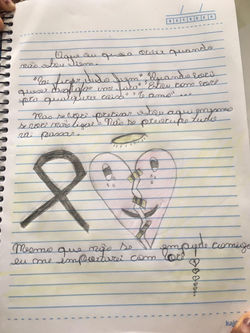 O que eu queria ouvir quando
não estou bem.
"Vai ficar tudo bem" "Quando você
quiser desabafar me fala" "Estou com você
pra qualquer coisa" "Te amo"...
Mas se você precisar estou aqui mesmo
se você não ligar. Não se preocupe tudo
vai passar.
Mesmo que não se comigo
eu me importarei com